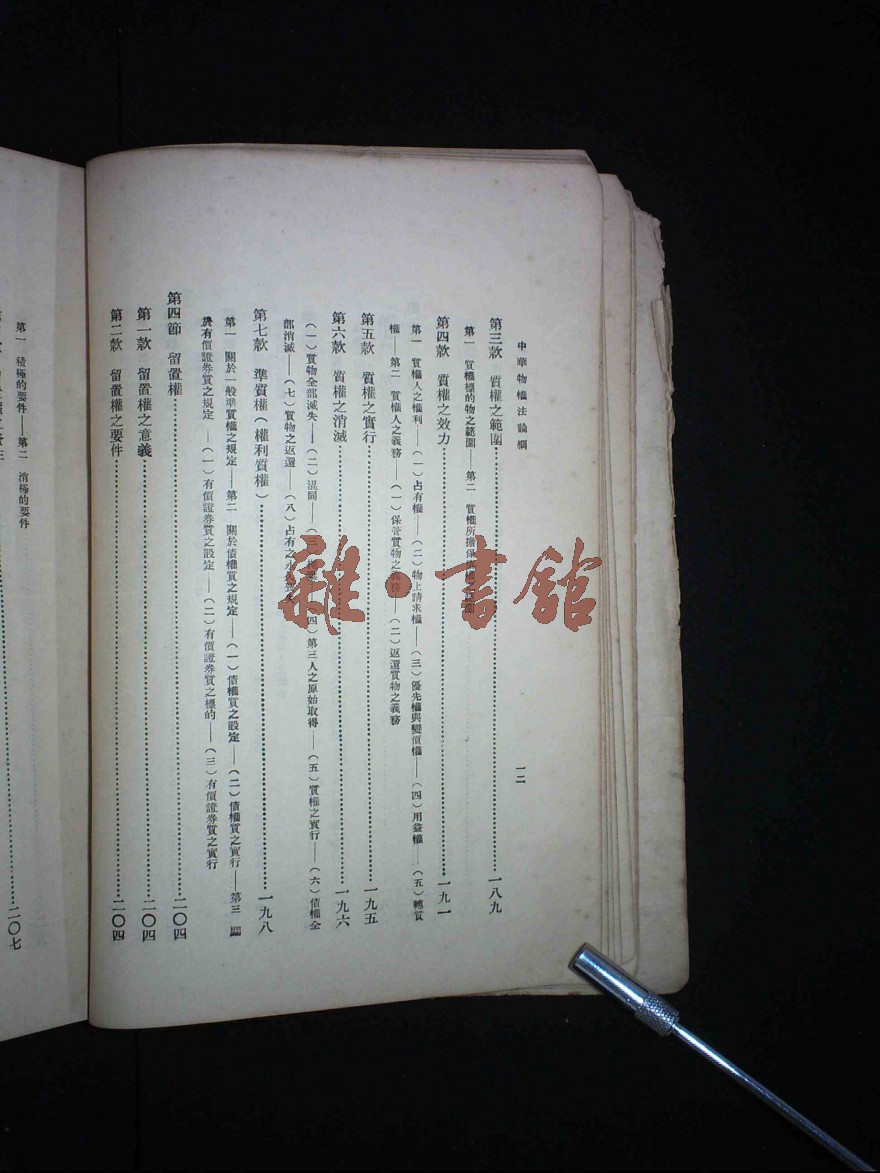 中華物權法論綱
一二
第三款 質權之範圍……一八九
第一 質權標的物之範圍——第二 質權所擔保
第四款 質權之效力……一九一
第一 質權人之權利——(一)占有權——(二)物上請求權——(三)優先權與變價權——(四)用益權——(五)轉質
權——第二 質權人之義務——(一)保管質物之義務——(二)返還質物之義務
第五款 質權之實行……一九五
第六款 質權之消滅……一九六
(一)質物全部滅失——(二)混同——(三)——(四)第三人之原始取得——(五)質權之實行——(六)債權全
部消滅——(七)質物之返還——(八)占有之
第七款 準質權(權利質權)……一九八
第一 關於一般準質權之規定——第二 關於債權質之規定——(一)債權質之設定——(二)債權質之實行——第三 關
於有價證券質之規定——(一)有價證券質之設定——(二)有價證券質之標的——(三)有價證券質之實行
第四節 留置權……二〇四
第一款 留置權之意義……二〇四
第二款 留置權之要件……二〇四
第一 積極的要件——第二 消極的要件
二〇七
雜·書館